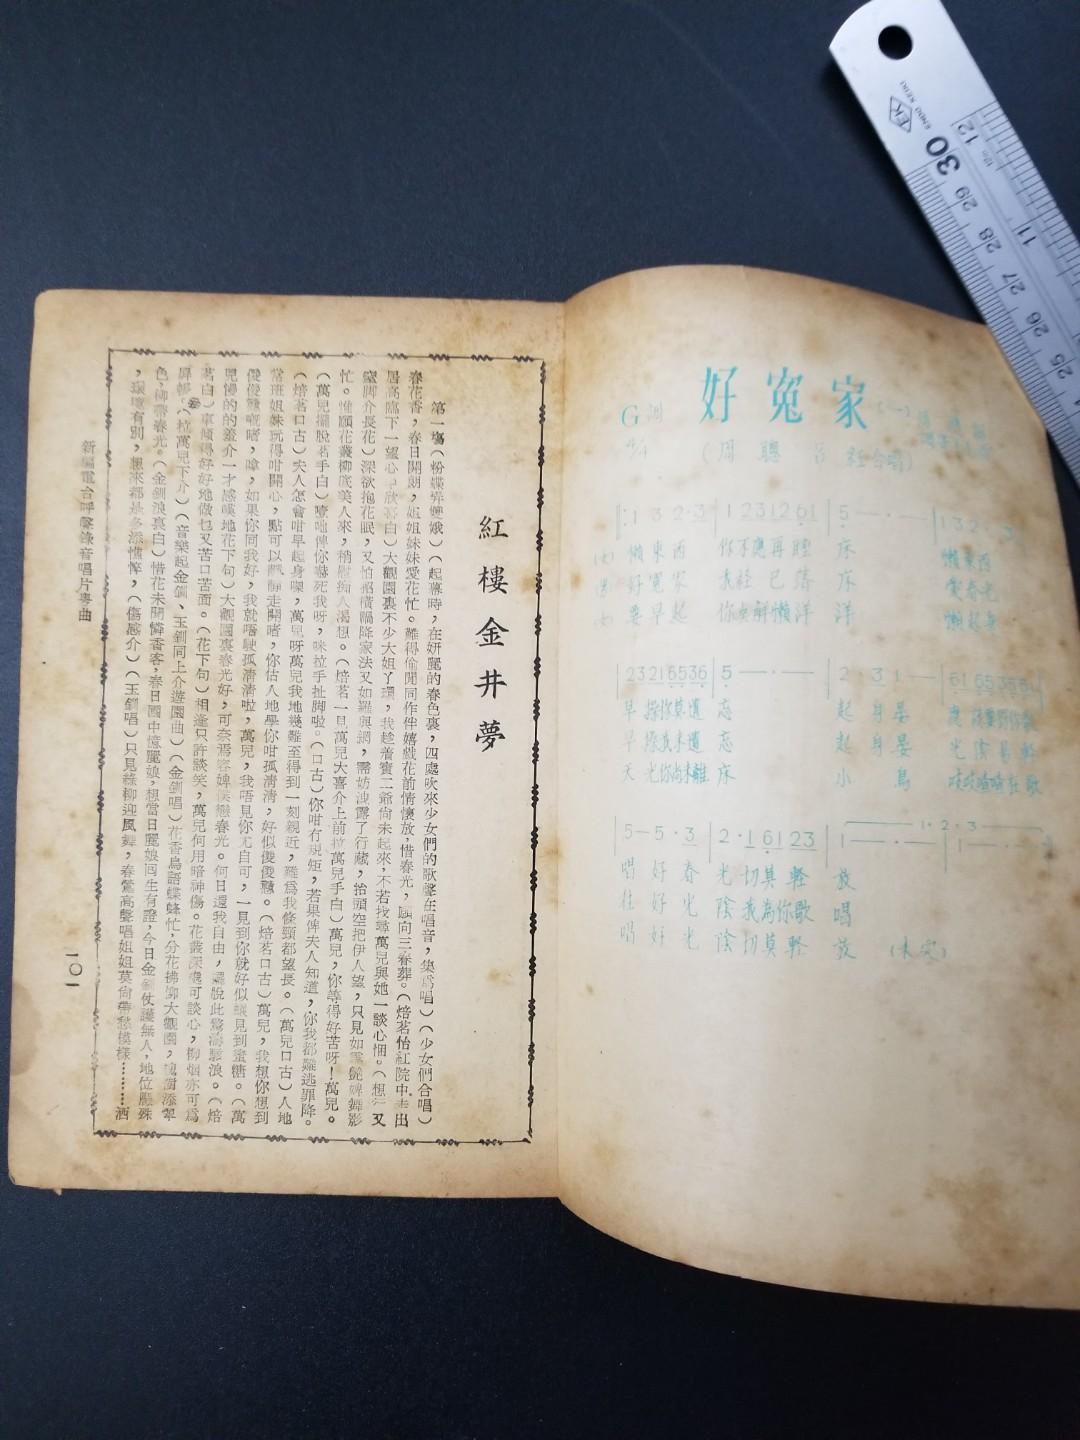 紅樓金井夢
第一塲(粉蝶弄嫦娥)(起幕時,在妍麗的春色裏,四處吹來少女們的歌聲在唱音,集爲唱)(少女們合唱)
春花香,春日開朗,姐姐妹妹愛花忙。難得偷閒同作伴嬉戲花前情懷放,惜春光,願向三春葬。(焙茗怡紅院中走出
居高臨下一望心中欣喜白)大觀園裏不少大姐了環,我趁着寶二爺尚未起來,不若找尋萬兒與她一談心悃。(想
介長花)深欲抱花眠,又怕招橫禍降家法又如羅與網,需妨洩露了行蔵,抬頭空把伊人望,只見如雲艷婢舞影
忙。惟願花叢柳底美人來,稍慰痴人渴想。(焙茗一見萬兒大喜介上前拉萬兒手白)萬兒,你等得好苦呀!萬兒。
(萬兒擺脫茗手白)噫吔俾你嚇死我呀,咪拉手扯脚啦。(口古)你咁冇規矩,若果俾夫人知道,你我都難逃罪降。
(焙茗口古)夫人怎會咁早起身㗎,萬兒呀萬兒我地幾難至得到一刻親近,難爲我條頸都望長。(萬兒口古)人地
當班姐妹玩得咁開心,點可以靜靜走開啫,你估人地學你咁孤淸淸,好似傻傻戇。(焙茗口古)萬兒,我想你想到
傻傻戇嘅啫,嗱,如果你同我好,我就唔駛孤淸淸啦,萬兒,我唔見你尤自可,一見到你就好似蟻見到蜜糖。(萬
兒慢的的羞介一才感嘆地花下句)大觀園裏春光好,可奈焉容婢僕戀春光。何日還我自由,擺脫此驚濤駭浪。(焙
茗白)車傾得好好地做乜又苦口苦面。(花下句)相逢只許談笑,萬兒何用暗神傷。花叢深處可談心,柳烟亦可爲
屏帳。(拉萬兒下介)(音樂起金釧、玉釧同上介遊園曲)(金釧唱)花香鳥語蝶蜂忙,分花拂柳大觀園,
色,柳帶春光。(金釧浪裏白)惜花未開憐香客,春日園中憶麗娘,想當日麗娘回生有證,今日金釧仗護無人,地位懸殊
,環境有別,想來都是多添惟悴,(傷感介)(玉釧唱)只見綠柳迎風舞,春鶯高聲唱姐姐莫尙帶愁模樣…………洒
新編電台呼聲錄音唱片粵曲
一〇一
好冤家(一)
G調
4/4
(周聰 呂紅合唱)
1 3 2·3 | 1 231261 | 5 — · — | 132·3
懶東西 你不應再睡床 懶東西
好冤家 我經已落床
要早起 你要解懶洋洋
23216536 | 5 — · — | 2·3 1 —
早操你莫遺忘 起身晏
早操我未遺忘 起身晏
天光你尚未離床 小鳥 吱吱喳喳在歌
5—5·3 | 2·16123 | 1 1·2·3
唱好春光切莫輕放
往好光陰我為你歌唱
唱好光陰切莫輕放 (未完)
30 29 28 27 26 25 24
12 11
ENDO KEIKI